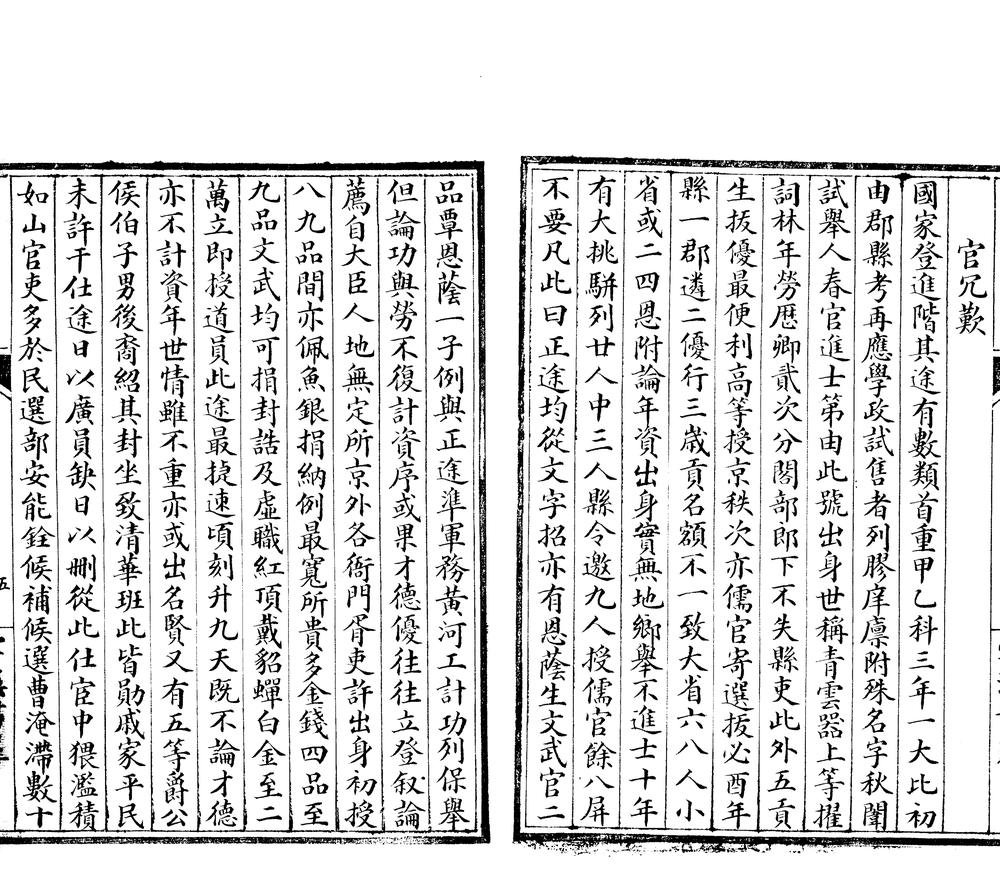 官冗歎
國家登進階其途有數類首重甲乙科三年一大比初
由郡縣考再應學政試售者列膠庠廩附殊名字秋闈
試舉人春官進士第由此號出身世稱青雲器上等擢
詞林年勞歷卿貳次分閣部郎下不失縣吏此外五貢
生拔優最便利高等授京秩次亦儒官寄選拔必酉年
縣一郡遴二優行三歲貢名額不一致大省六八人小
省或二四恩附論年資出身實無地鄉舉不進士十年
有大挑駢列廿人中三人縣令邀九人授儒官餘八屏
不要凡此曰正途均從文字招亦有恩蔭生文武官二
品覃恩蔭一子例與正途準軍務黃河工計功列保舉
但論功與勞不復計資序或果才德優往往立登叙論
薦自大臣人地無定所京外各衙門胥吏許出身初授
八九品間亦佩魚銀捐納例最寬所貴多金錢四品至
九品文武均可捐封誥及虛職紅頂戴貂蟬白金至二
萬立即授道員此途最捷速頃刻升九天既不論才德
亦不計資年世情雖不重亦或出名賢又有五等爵公
侯伯子男後裔紹其封坐致清華班此皆勛戚家平民
未許干仕途日以廣員缺日以刪從此仕宦中猥濫積
如山官吏多於民選部安能銓候補候選曹淹滯數十
五